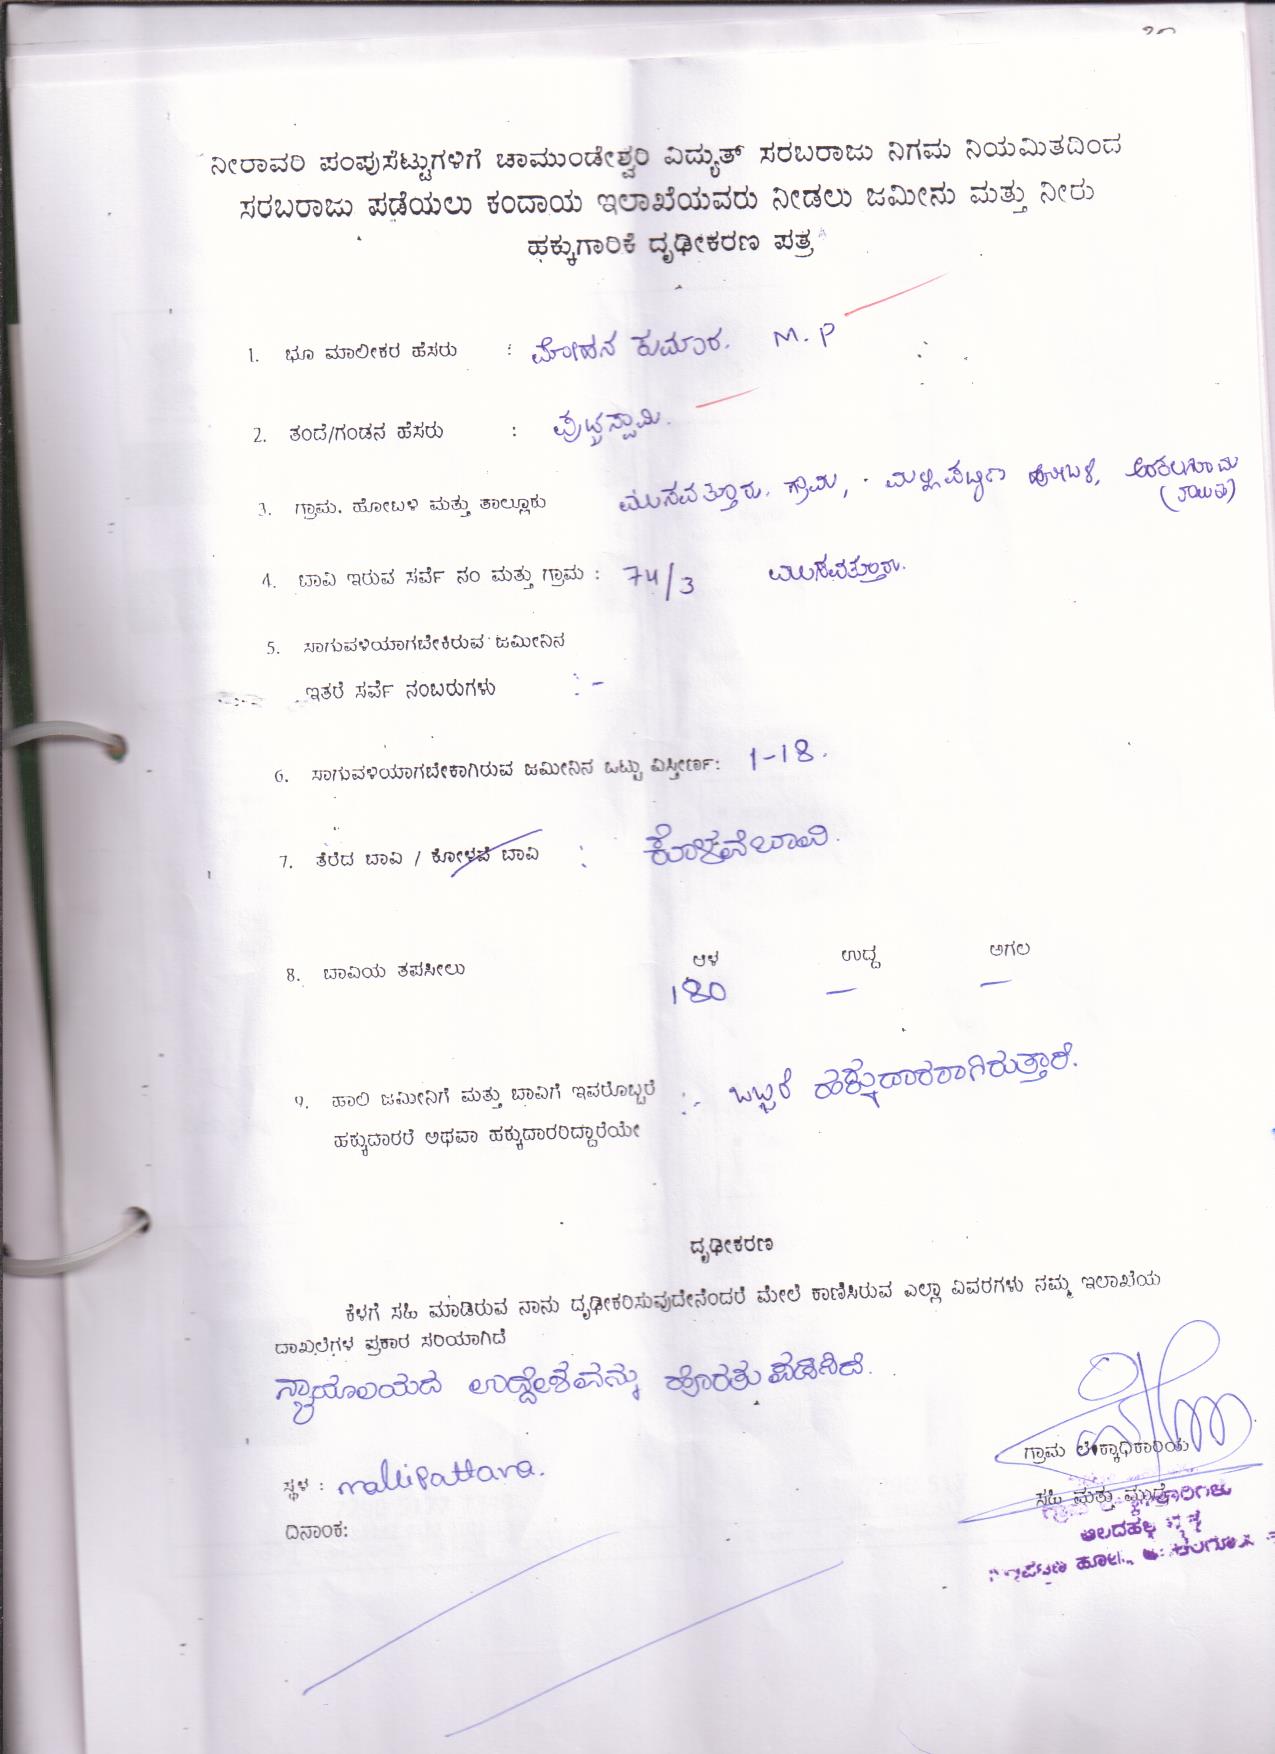 ನೀರಾವರಿ ಪಂಪುಸೆಟ್ಟುಗಳಿಗೆ ಚಾಮುಂಡೇಶ್ವರಿ ವಿದ್ಯುತ್ ಸರಬರಾಜು ನಿಗಮ ನಿಯಮಿತದಿಂದ
ಸರಬರಾಜು ಪಡೆಯಲು ಕಂದಾಯ ಇಲಾಖೆಯವರು ನೀಡಲು ಜಮೀನು ಮತ್ತು ನೀರು
ಹಕ್ಕುಗಾರಿಕೆ ದೃಢೀಕರಣ ಪತ್ರ
1. ಭೂ ಮಾಲೀಕರ ಹೆಸರು : ಮೋಹನ ಕುಮಾರ. M.P
2. ತಂದೆ/ಗಂಡನ ಹೆಸರು : ಪುಟ್ಟಸ್ವಾಮಿ.
3. ಗ್ರಾಮ, ಹೋಬಳಿ ಮತ್ತು ತಾಲ್ಲೂಕು ಮುಸವತ್ತೂರು. ಗ್ರಾಮ, ಮಲ್ಲಿಪಟ್ಟಣ ಹೋಬಳಿ,
4. ಬಾವಿ ಇರುವ ಸರ್ವೆ ನಂ ಮತ್ತು ಗ್ರಾಮ : 74/3 ಮುಸವತ್ತೂರು.
5. ಸಾಗುವಳಿಯಾಗಬೇಕಿರುವ ಜಮೀನಿನ
ಇತರೆ ಸರ್ವೆ ನಂಬರುಗಳು : -
6. ಸಾಗುವಳಿಯಾಗಬೇಕಾಗಿರುವ ಜಮೀನಿನ ಒಟ್ಟು ವಿಸ್ತೀರ್ಣ: 1-18.
7. ತೆರೆದ ಬಾವಿ / ಕೋಳವೆ ಬಾವಿ : ಕೊಳವೆಬಾವಿ.
8. ಬಾವಿಯ ತಪಸೀಲು ಆಳ ಉದ್ದ ಅಗಲ
180 — —
9. ಹಾಲಿ ಜಮೀನಿಗೆ ಮತ್ತು ಬಾವಿಗೆ ಇವರೊಬ್ಬರೆ :- ಒಬ್ಬರೆ ಹಕ್ಕುದಾರರಾಗಿರುತ್ತಾರೆ.
ಹಕ್ಕುದಾರರೆ ಅಥವಾ ಹಕ್ಕುದಾರರಿದ್ದಾರೆಯೇ
ದೃಢೀಕರಣ
ಕೆಳಗೆ ಸಹಿ ಮಾಡಿರುವ ನಾನು ದೃಢೀಕರಿಸುವುದೇನೆಂದರೆ ಮೇಲೆ ಕಾಣಿಸಿರುವ ಎಲ್ಲಾ ವಿವರಗಳು ನಮ್ಮ ಇಲಾಖೆಯ
ದಾಖಲೆಗಳ ಪ್ರಕಾರ ಸರಿಯಾಗಿದೆ
ನ್ಯಾಯಾಲಯದ ಉದ್ದೇಶವನ್ನು ಹೊರತು ಪಡಿಸಿದೆ.
ಗ್ರಾಮ ಲೆಕ್ಕಾಧಿಕಾರಿಯ
ಸ್ಥಳ : mallipattana.
ಸಹಿ ಮತ್ತು ಮುದ್ರೆ
ದಿನಾಂಕ: